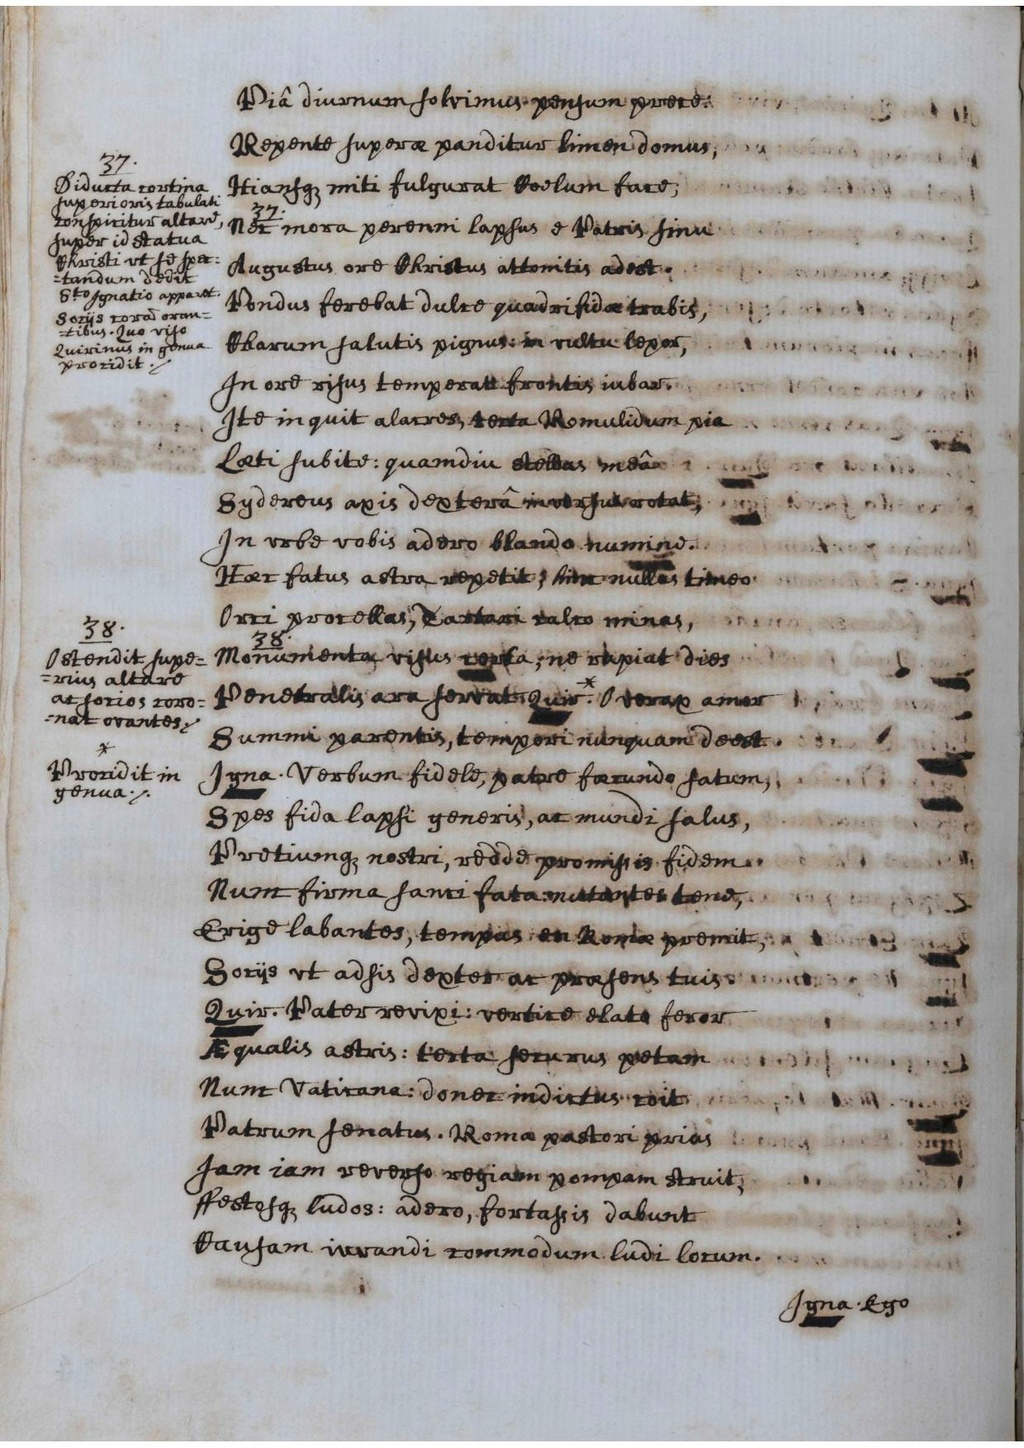 Piâ diurnum solvimus pensum prece.
Repente superæ panditur limen domus,
37.
Diducta cortina
superioris tabulati
conspicitur altare,
super id statua
Christi ut se spec=
=tandum dedit
Sto Ignatio apparet.
Socijs coram oran=
=tibus. Quo viso
Quirinus in genua
procidit.
Hiansq; miti fulgurat Coelum face;
37.
Nec mora perenni lapsus e Patris sinu
Augustus ore Christus attonitis adest.
Pondus ferebat dulce quadrifidæ trabis,
Charum salutis pignus: in vultu lepor,
In ore risus temperat frontis iubar.
Ite inquit alacres, tecta Romulidum pia
Læti subite: quamdiu stellas meâ
Sydereus axis dexterâ inversus rotat,
In urbe vobis adero blando numine.
Hæc fatus astra repetit; hinc nullas timeo
Orci procellas, Tartari calco minas,
38.
Ostendit supe=
=rius altare
ac socios coro=
=nat orantes.
38.
Monumenta visus certa, ne rapiat dies
Penetralis ara servat. Quir. * O verax amor
Summi parentis, tempori nunquam deest.
*
Procidit in
genua.
Igna. Verbum fidele, patre fæcundo satum,
Spes fida lapsi generis, ac mundi salus,
Pretiumq; nostri, redde promissis fidem.
Nunc firma sanci fata nutantes tene,
Erige labantes, tempus en Romæ premit,
Socijs ut adsis dexter ac præsens tuis.
Quir. Pater revixi: vertice elato feror
Æqualis astris: tecta securus petam
Nunc Vaticana: donec indictus coit
Patrum senatus. Roma pastori prius
Iam iam reverso regiam pompam struit,
ffestosq; ludos: adero, fortassis dabunt
Causam iuvandi commodum ludi locum.
Igna. Ego